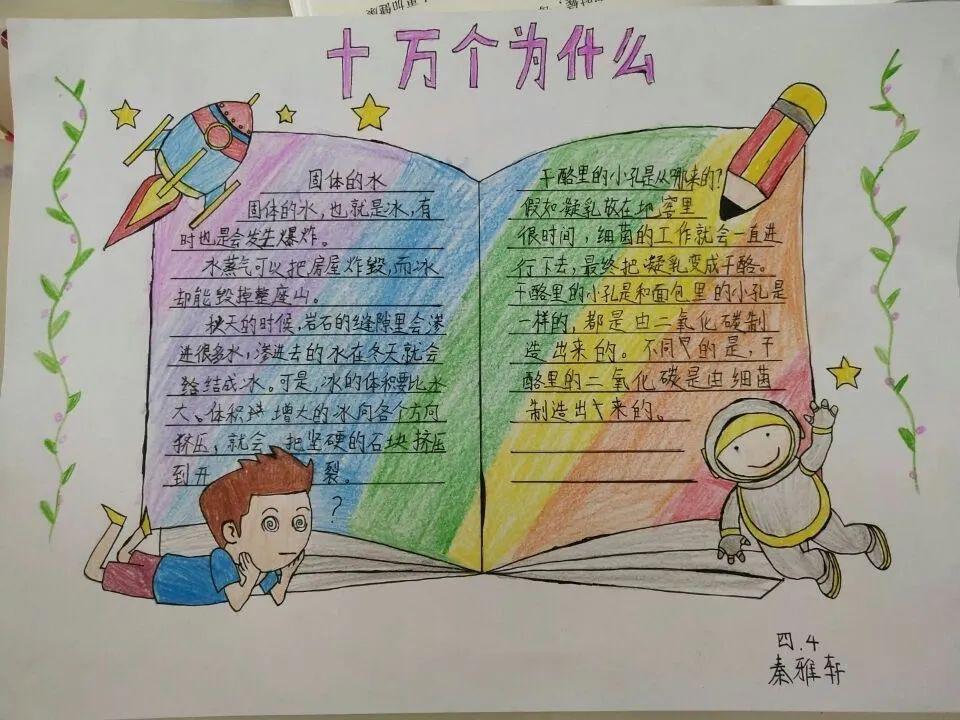 十万个为什么
固体的水
固体的水,也就是冰,有
时也是会发生爆炸。
水蒸气可以把房屋炸毁,而冰
却能毁掉整座山。
秋天的时候,岩石的缝隙里会渗
进很多水,渗进去的水在冬天就会
给结成冰。可是,冰的体积要比水
大。体积 增大的冰向各个方向
挤压,就会 把坚硬的石块挤压
到开 裂。
?
干酪里的小孔是从哪来的?
假如凝乳放在地窖里
很时间,细菌的工作就会一直进
行下去,最终把凝乳变成干酪。
干酪里的小孔是和面包里的小孔是
一样的,都是由二氧化碳制
造出来的。不同 的是,干
酪里的二氧化碳是由细菌
制造出 来的。
四.4
秦雅轩
更加健康
时候,